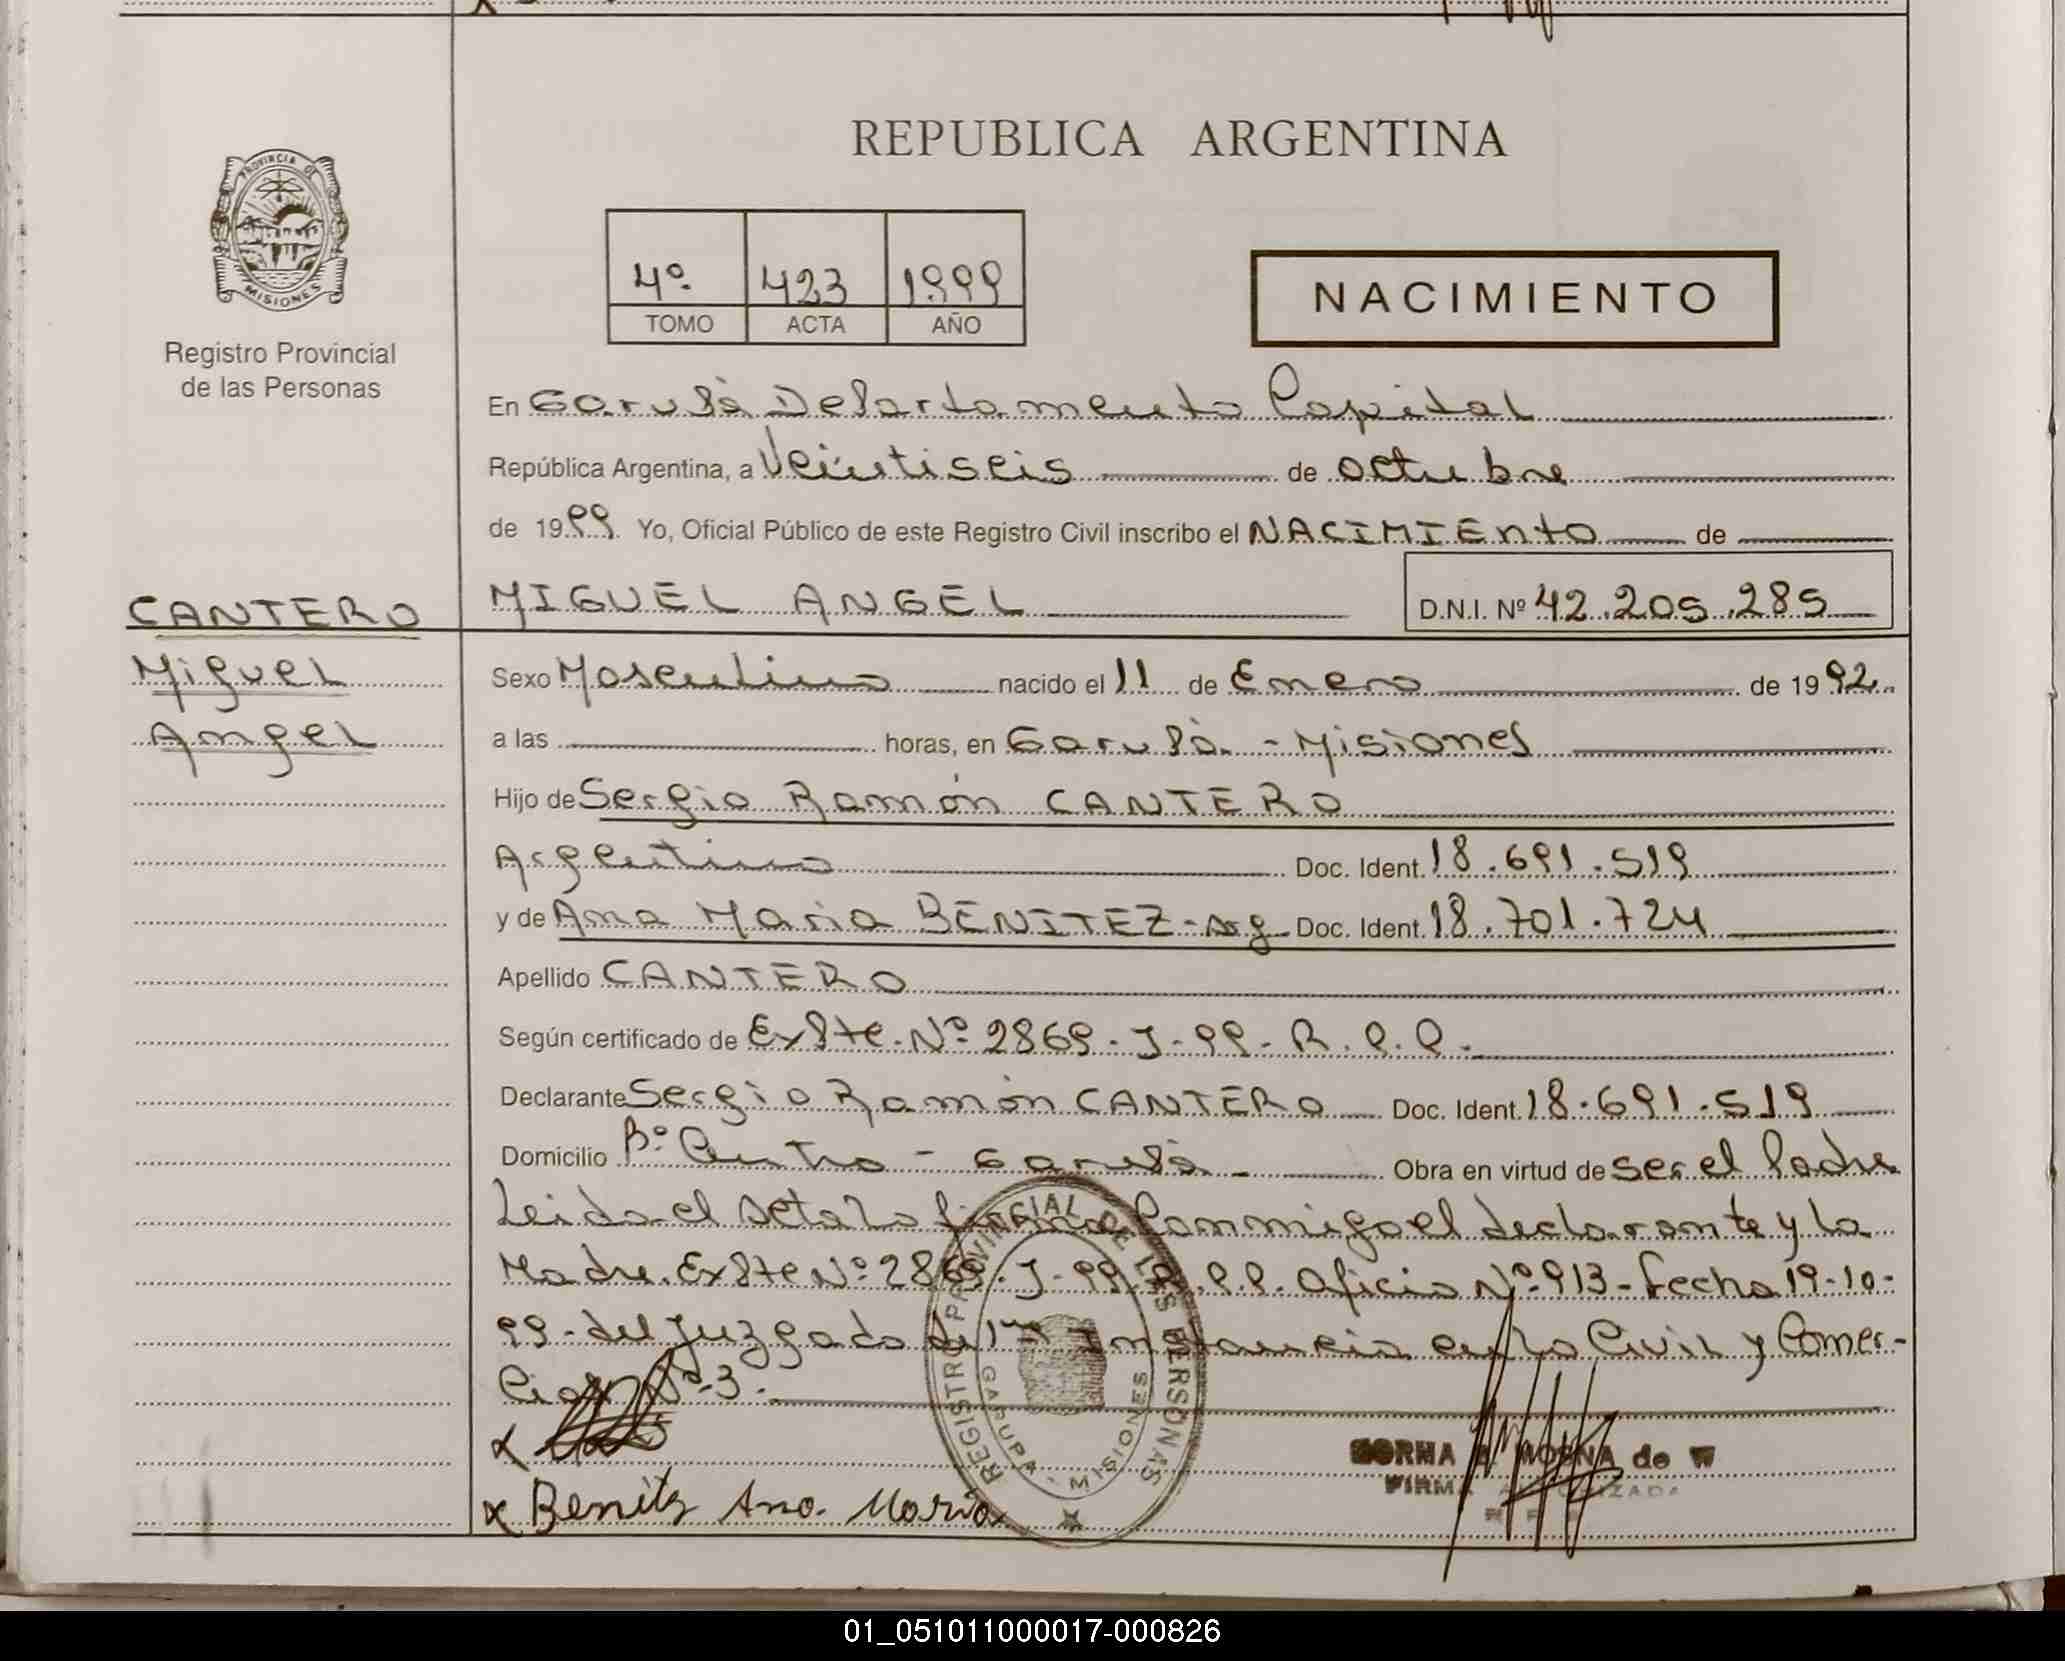 REPUBLICA ARGENTINA
PROVINCIA DE
MISIONES
Registro Provincial
de las Personas
4º 423 1999
TOMO ACTA AÑO
NACIMIENTO
En Garupá Departamento Capital
República Argentina, a Veintiseis de octubre
de 1999 Yo, Oficial Público de este Registro Civil inscribo el NACIMIENTO de
CANTERO MIGUEL ANGEL D.N.I. Nº 42.205.285
Miguel
Angel
Sexo Masculino nacido el 11 de Enero de 1992
a las horas, en Garupá - Misiones
Hijo de Sergio Ramón CANTERO
Argentino Doc. Ident. 18.691.519
y de Ana Maria BENITEZ - Arg Doc. Ident. 18.701.724
Apellido CANTERO
Según certificado de Expte. Nº 2869 - J - 99 - R.P.P.
Declarante Sergio Ramón CANTERO Doc. Ident. 18.691.519
Domicilio Bº Centro - Garupá - Obra en virtud de ser el Padre
Leida el acta la firman Conmigo el declarante y la
Madre. Expte Nº 2869 - J - 99 - R.P.P. Oficio Nº 913 - fecha 19-10-
99 - del Juzgado de 1ra Instancia en lo Civil y Comer-
cial Nº 3.
REGISTRO PROVINCIAL DE LAS PERSONAS
GARUPA - MISIONES
NORMA MOSNA de W
FIRMA AUTORIZADA
x
x Benitz Ana Maria
01_051011000017-000826